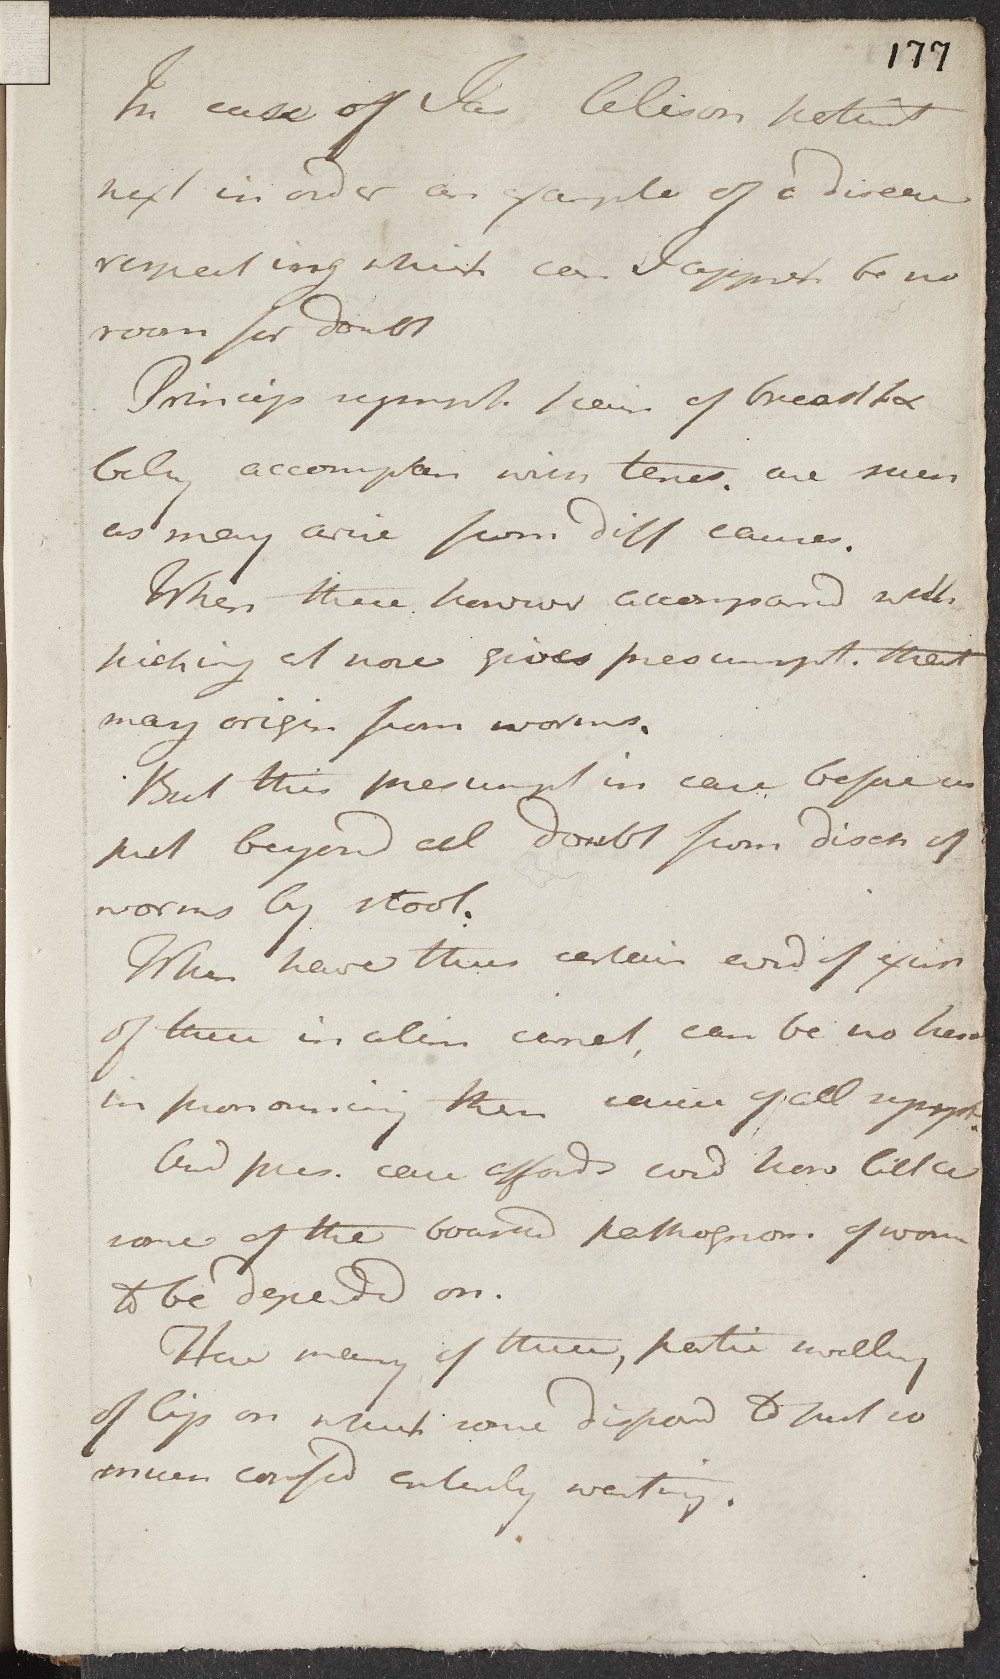 177
In case of Jas Alison patient
next in order an example of a disease
respecting which can I appreh be no
room for doubt
Princip symptk pain of breast &
bely accompan with tenes. are such
as may arise from diff causes.
When these however accompand with
picking at nose gives presumpt. that
may origin from worms.
But this presumpt in case before us
put beyond all doubt from disch of
worms by stool.
When have thus certain evid of exist
of these in alim canal, can be no hesi
in pronouncing them cause of all sympt.
And pres. case affords evid how little
some of the boasted pathognom. of worm
to be depended on.
Here many of these, partic swelling
of lip on which some disposd to put so
much confid entirely wanting.